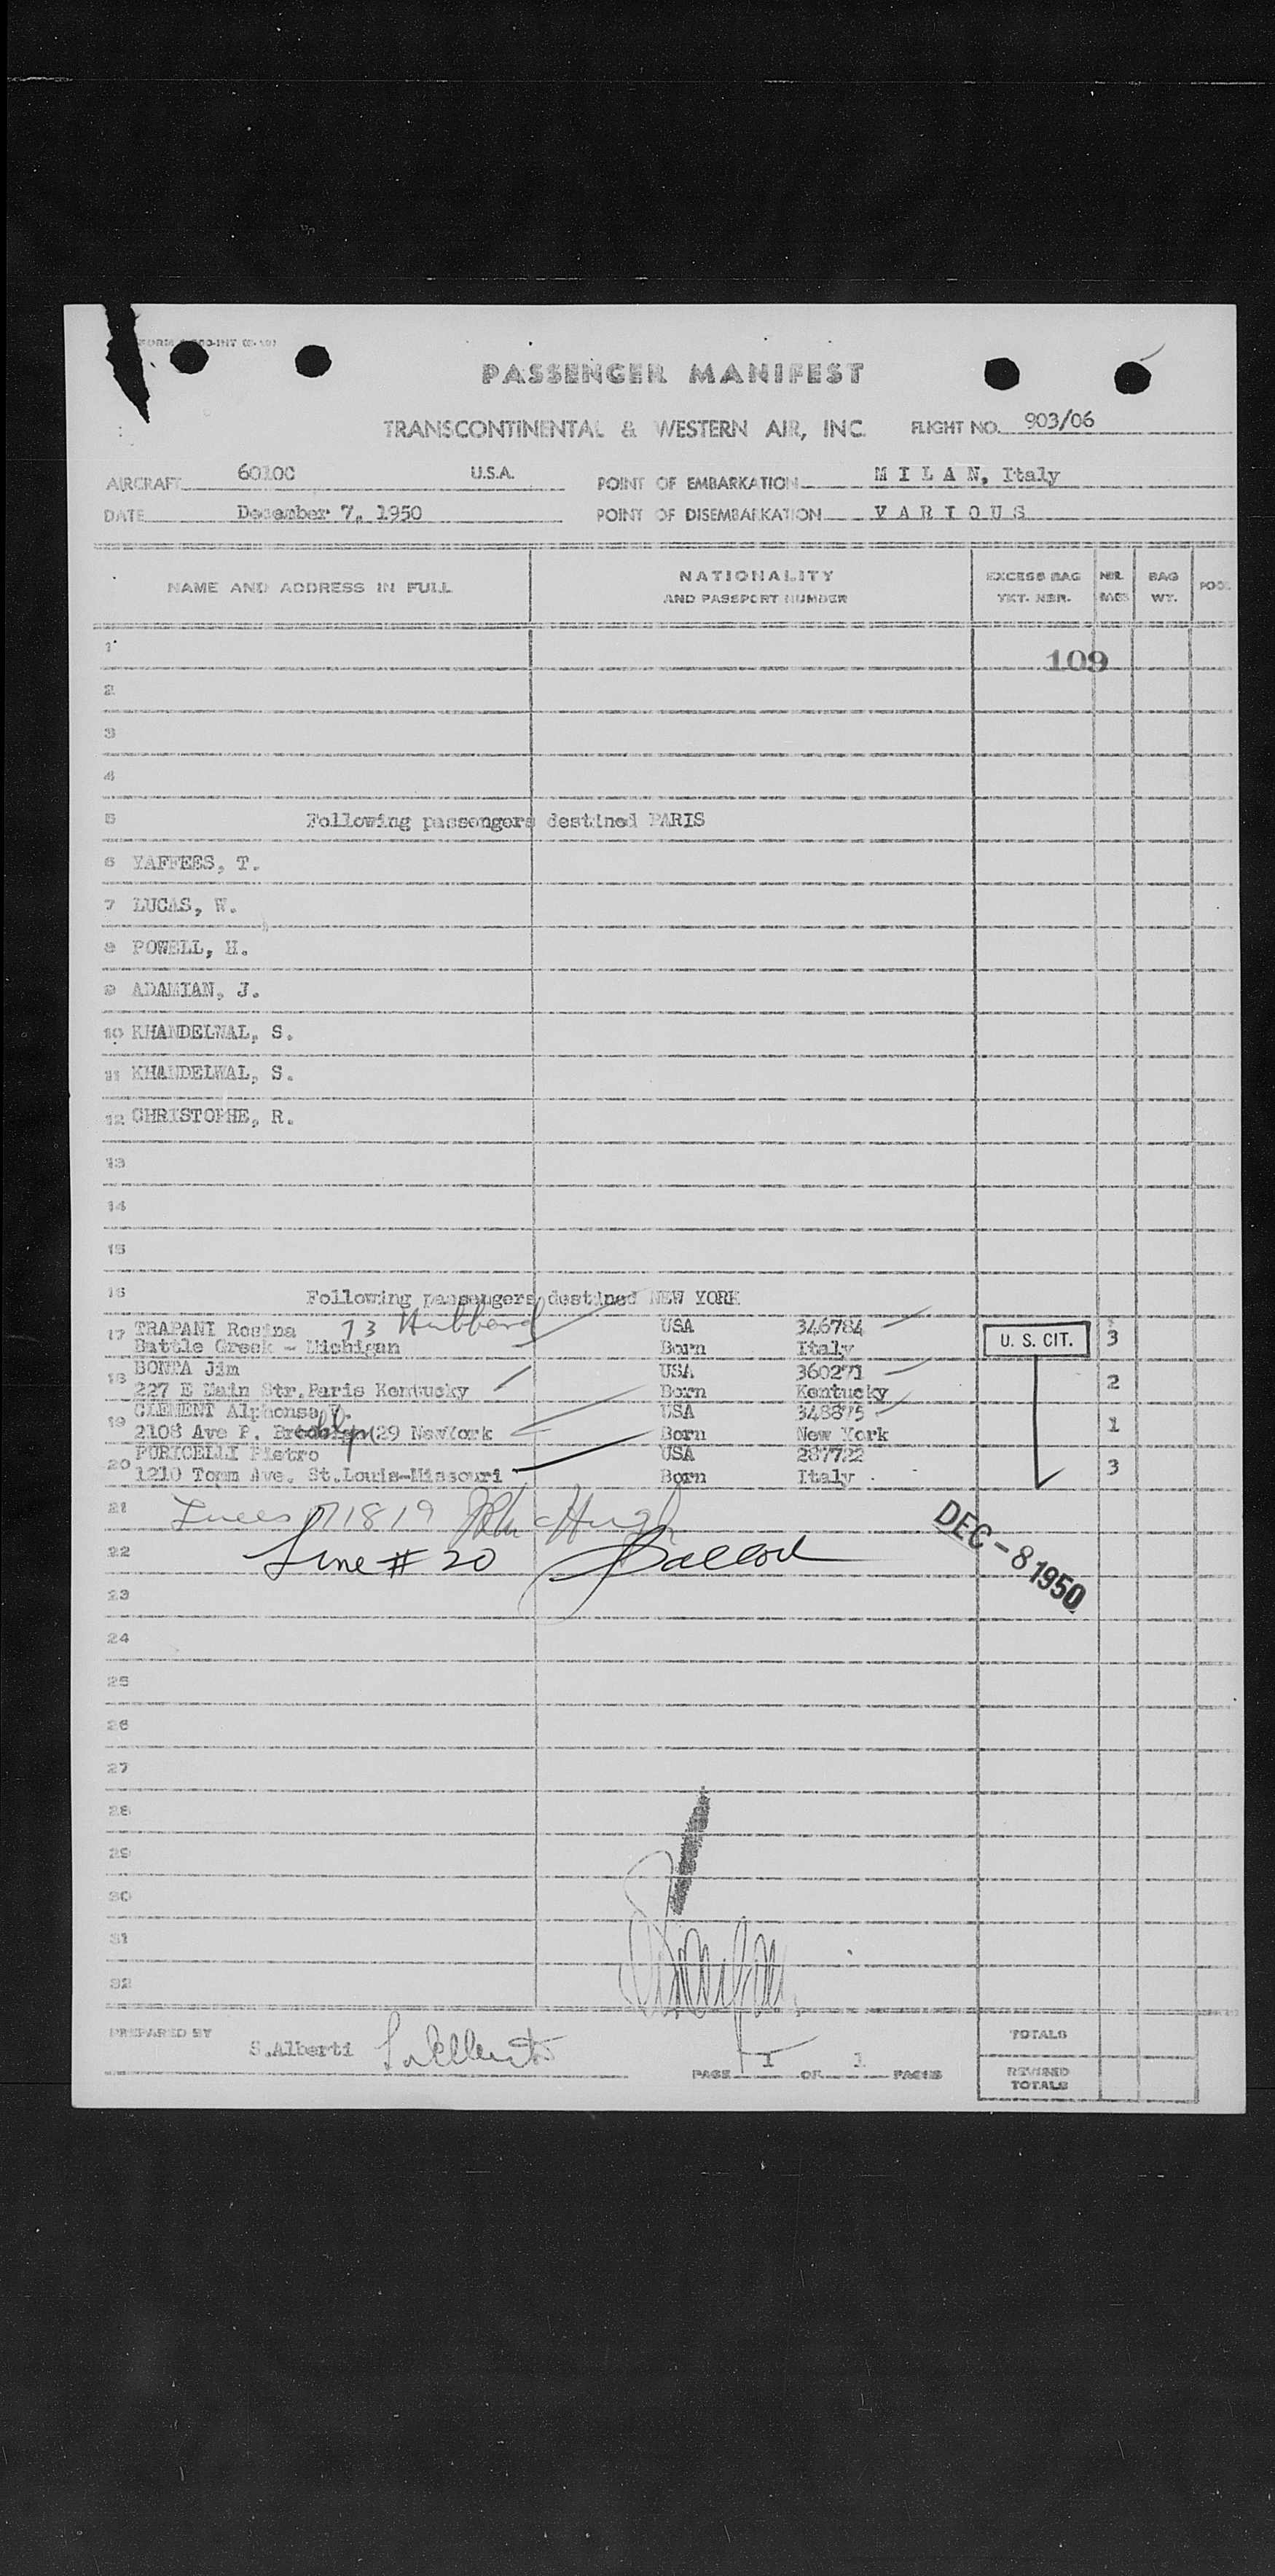 PASSENGER MANIFEST
TRANSCONTINENTAL & WESTERN AIR, INC. FLIGHT NO. 903/06
AIRCRAFT 60100 U.S.A. POINT OF EMBARKATION M I L A N, Italy
DATE December 7, 1950 POINT OF DISEMBARKATION V A R I O U S
NAME AND ADDRESS IN FULL NATIONALITY AND PASSPORT NUMBER EXCESS BAG TKT. NBR. NBR. BAGS BAG WT. POOL
1 109
2
3
4
5 Following passengers destined PARIS
6 YAFFEES, T.
7 LUCAS, W.
8 POWELL, H.
9 ADAMIAN, J.
10 KHANDELWAL, S.
11 KHANDELWAL, S.
12 CHRISTOPHE, R.
13
14
15
16 Following passengers destined NEW YORK
17 TRAPANI Rosina 73 Hubbard USA 346784 U. S. CIT. 3
Battle Creek - Michigan Born Italy
18 BONTA Jim USA 360271 2
227 E Main Str.Paris Kentucky Born Kentucky
19 CLEMENT Alphonsa USA 348875 1
2108 Ave P. Brooklyn 29 NewYork Born New York
20 PORICELLI Pietro USA 287722 3
1210 Tomm Ave. St.Louis-Missouri Born Italy
21 Lines 17 18 19
22 Line # 20
DEC -8 1950
23
24
25
26
27
28
29
30
31
32
PREPARED BY S.Alberti S. Alberti TOTALS
PAGE 1 OF 1 PAGES REVISED TOTALS